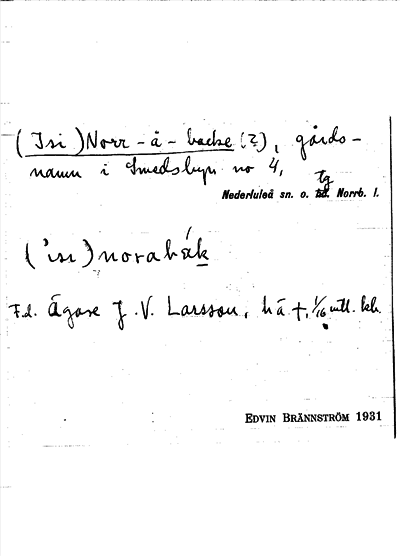 (Isi) Norr-å-backe (?), gårds-
namn i Smedsbyn no 4,
tg
Nederluleå sn. o. hd. Norrb. l.
('ısı) norabák
F.d. Ägare J. V. Larsson, hä †, 1/16 mtl. kh.
EDVIN BRÄNNSTRÖM 1931